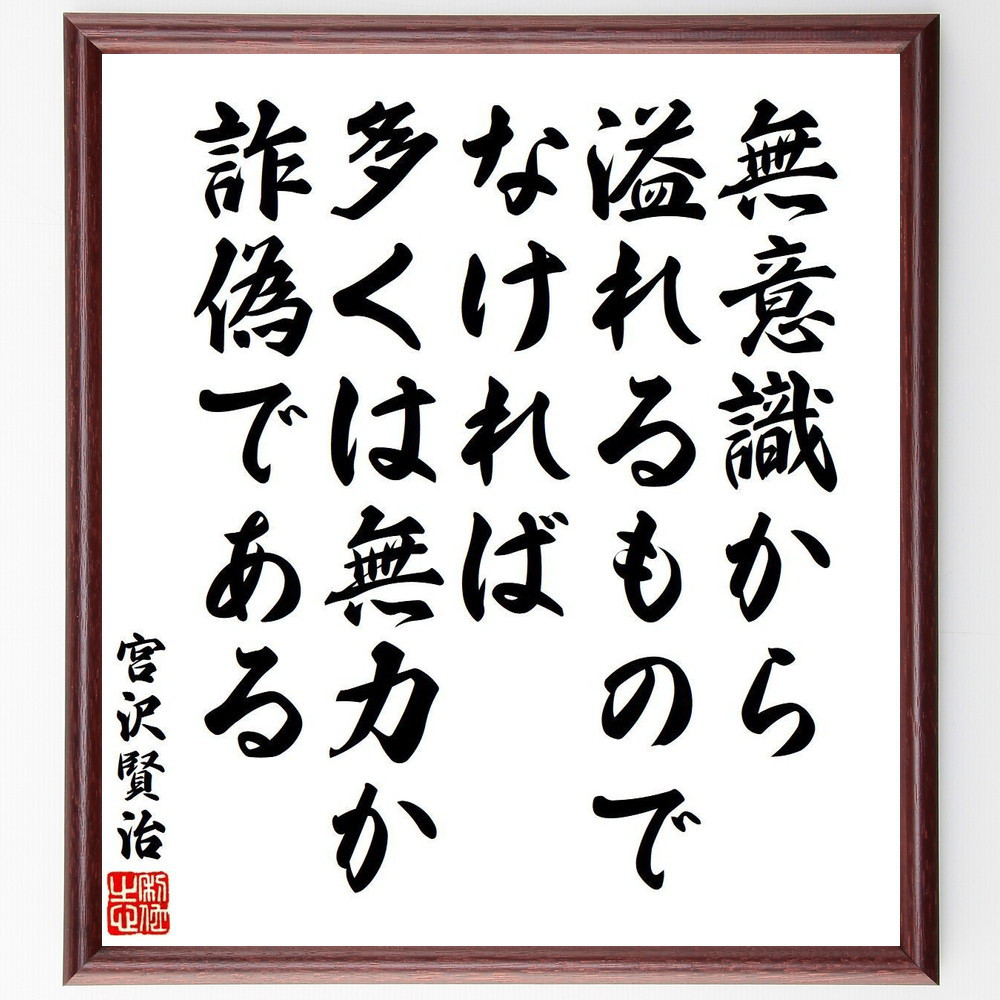 無意識から
溢れるもので
なければ
多くは無力か
詐偽である
宮沢賢治